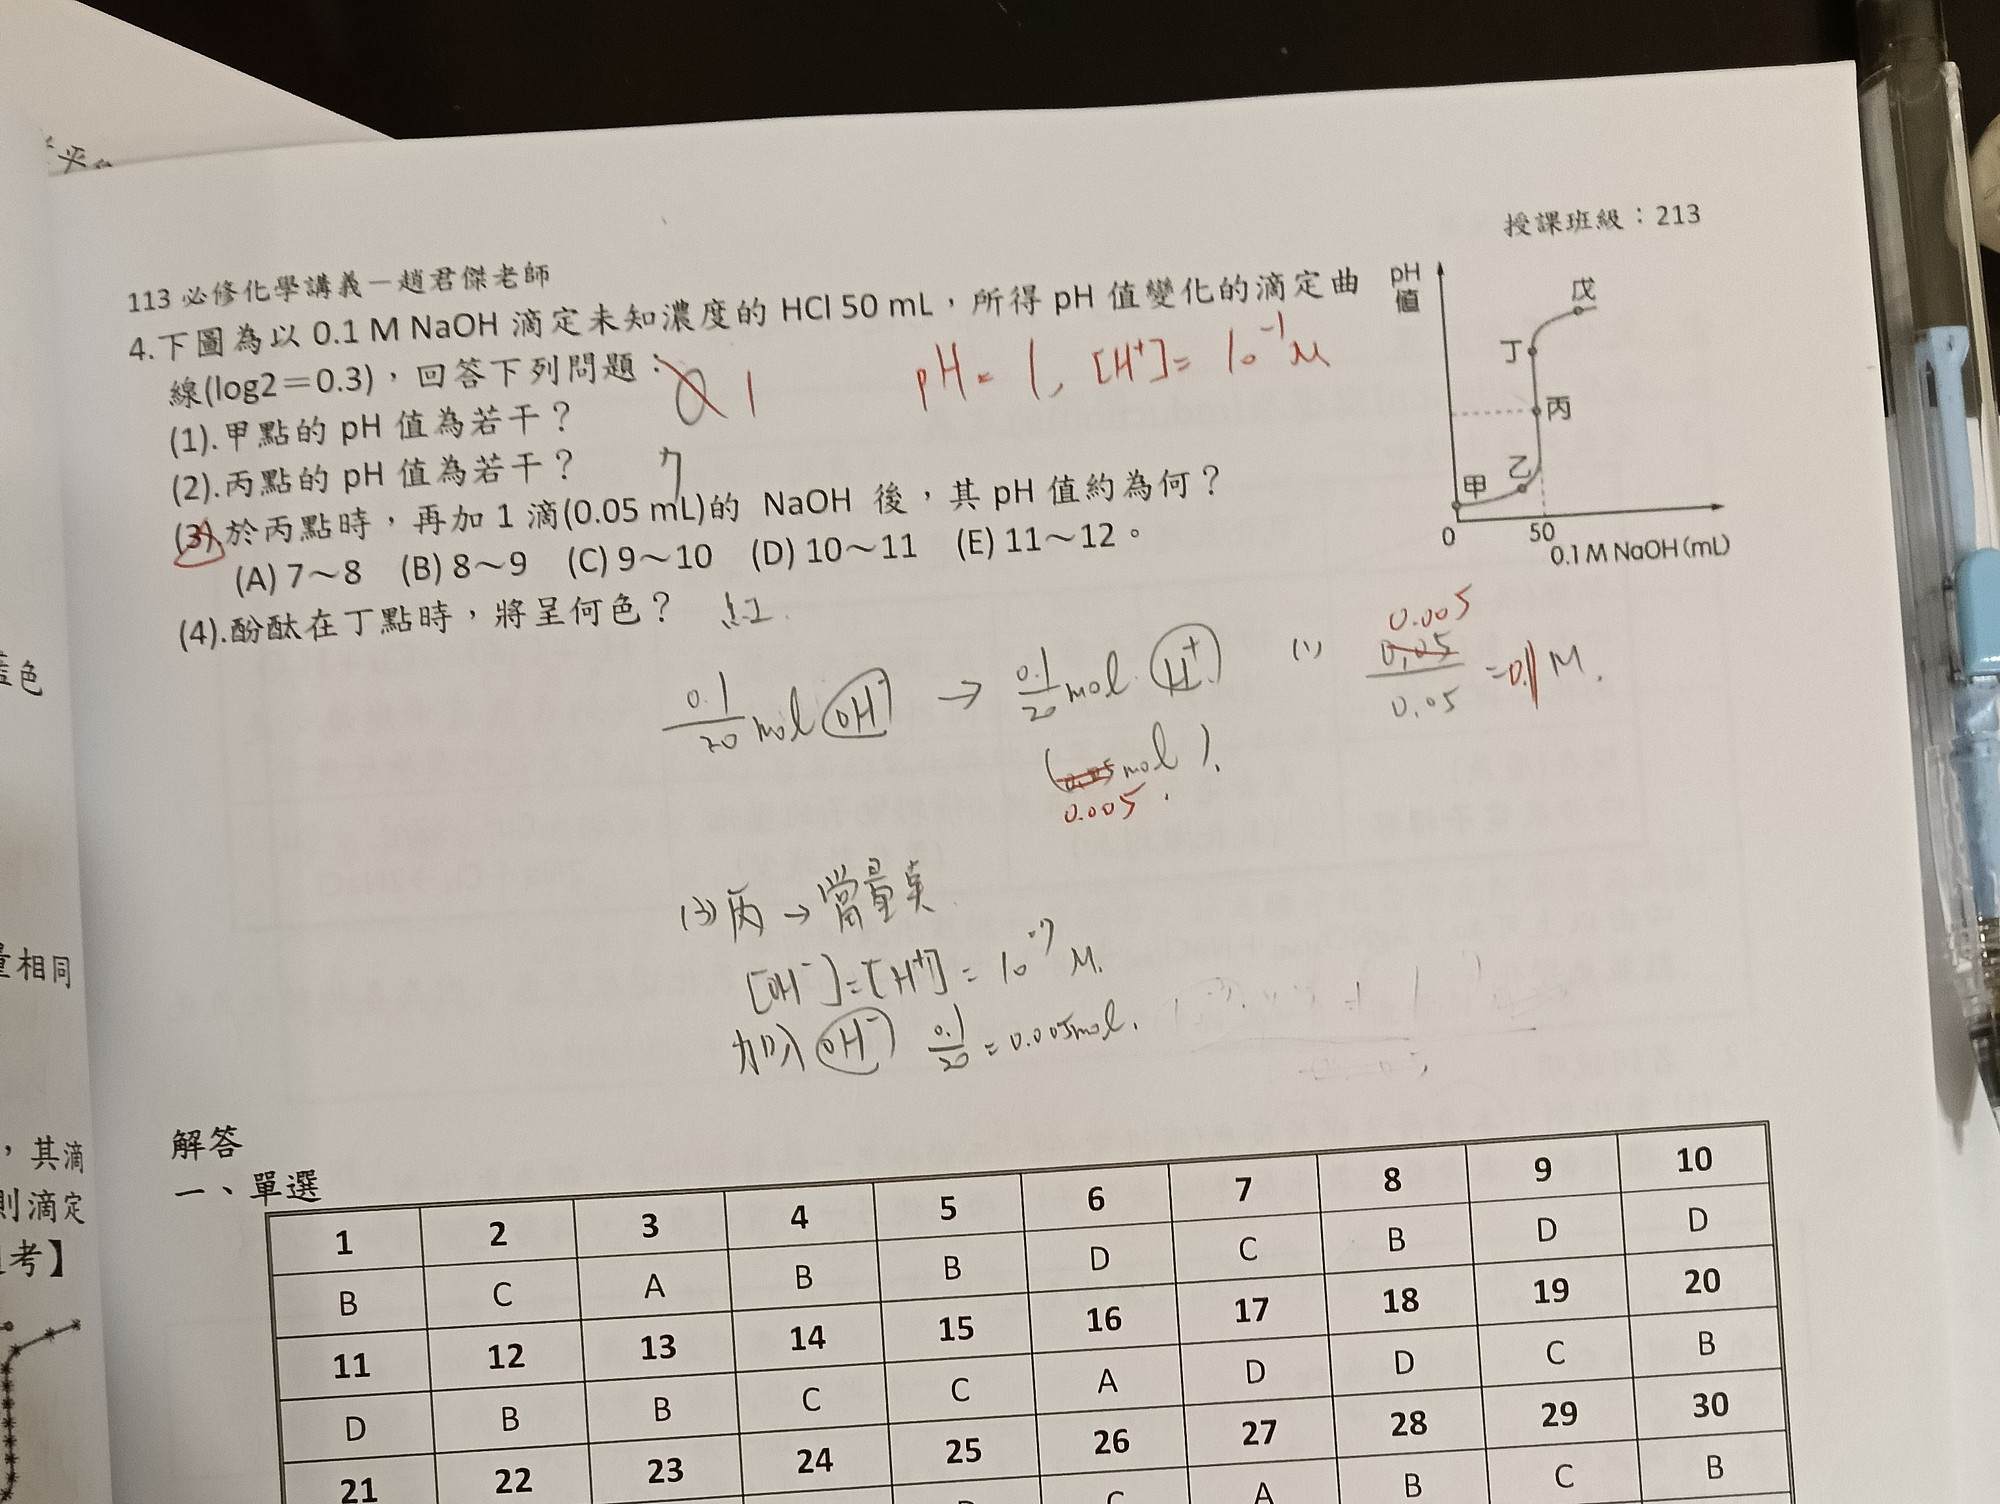 授課班級：213
113 必修化學講義－趙君傑老師
4.下圖為以 0.1 M NaOH 滴定未知濃度的 HCl 50 mL，所得 pH 值變化的滴定曲
線(log2＝0.3)，回答下列問題：
1 pH = 1, [H⁺]= 10⁻¹ M
(1).甲點的 pH 值為若干？
(2).丙點的 pH 值為若干？ 7
(3).於丙點時，再加 1 滴(0.05 mL)的 NaOH 後，其 pH 值約為何？
(A) 7～8 (B) 8～9 (C) 9～10 (D) 10～11 (E) 11～12。
(4).酚酞在丁點時，將呈何色？ 紅
pH
值
戊
丁
丙
乙
甲
0 50
0.1 M NaOH (mL)
0.1/20 mol OH⁻ → 0.1/20 mol H⁺
(0.05 mol).
0.005
(1) 0.005
0.05/0.05 = 0.1 M.
(3) 丙 → 當量點
[OH⁻]=[H⁺] = 10⁻⁷ M.
加入 OH⁻ 0.1/20 = 0.005mol.
解答
一、單選
1 2 3 4 5 6 7 8 9 10
B C A B B D C B D D
11 12 13 14 15 16 17 18 19 20
D B B C C A D D C B
21 22 23 24 25 26 27 28 29 30
A B C B
藍色
量相同
，其滴
則滴定
考】